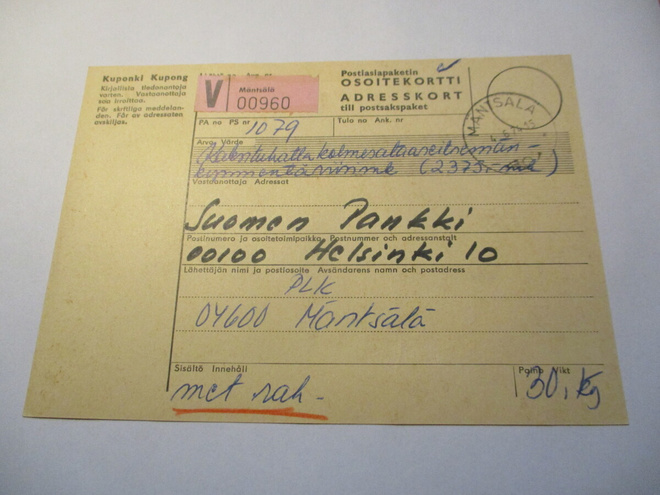 Kuponki Kupong
Kirjallisia tiedonantoja
varten. Vastaanottaja
saa irroittaa.
För skriftliga meddelan-
den. Får av adressaten
avskiljas.
V
Mäntsälä
00960
Postiasiapaketin
OSOITEKORTTI
ADRESSKORT
till postsakspaket
MÄNTSÄLÄ
PA no PS nr
1079
Tulo no Ank. nr
Arvo Värde
Kaksituhatta kolmesataaseitsemän-
kymmentä (2375.-mk)
Vastaanottaja Adressat
Suomen Pankki
Postinumero ja osoitetoimipaikka Postnummer och adressanstalt
00100 Helsinki 10
Lähettäjän nimi ja postiosoite Avsändarens namn och postadress
PLK
04600 Mäntsälä
Sisältö Innehåll
met rah-
Paino Vikt
30,- Kg